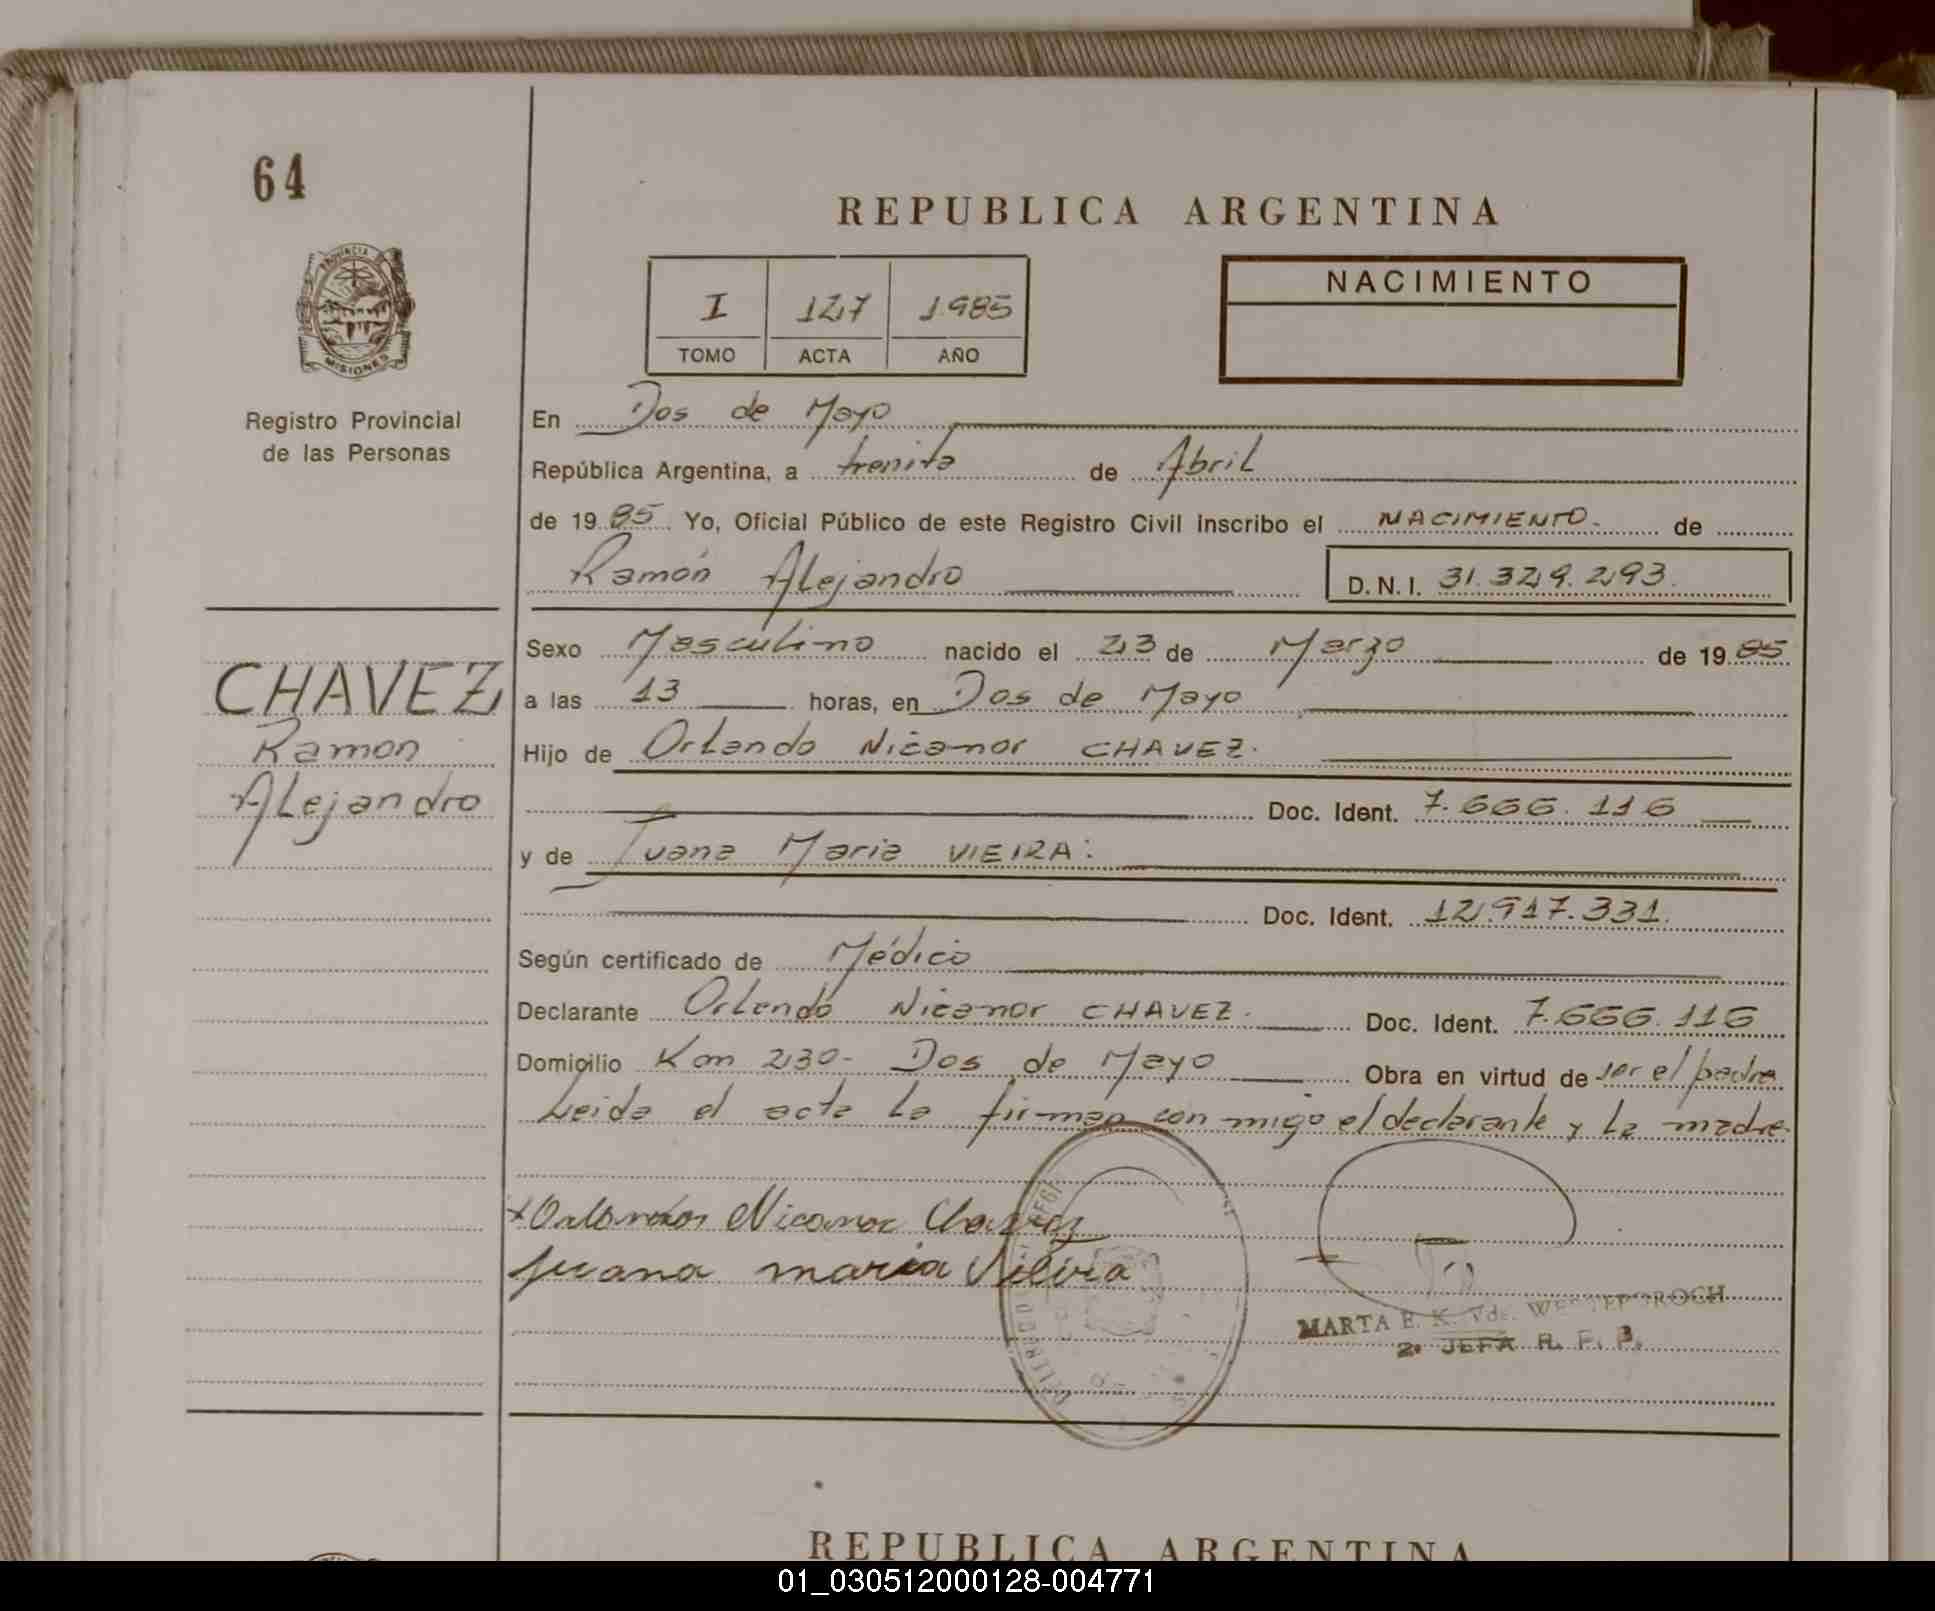 64
REPUBLICA ARGENTINA
PROVINCIA DE
MISIONES
Registro Provincial
de las Personas
I 127 1985
TOMO ACTA AÑO
NACIMIENTO
En Dos de Mayo
República Argentina, a treinta de Abril
de 1985 Yo, Oficial Público de este Registro Civil inscribo el NACIMIENTO. de
Ramón Alejandro D.N.I. 31.329.293.
CHAVEZ
Ramon
Alejandro
Sexo Masculino nacido el 23 de Marzo de 1985
a las 13 horas, en Dos de Mayo
Hijo de Orlando Nicanor CHAVEZ.
Doc. Ident. 7.666.116
y de Juana Maria VIEIRA.
Doc. Ident. 12.917.331.
Según certificado de Médico
Declarante Orlando Nicanor CHAVEZ. Doc. Ident. 7.666.116
Domicilio Km 230- Dos de Mayo Obra en virtud de ser el padre
Leida el acta la firman con migo el declarante y la madre.
Nicanor Chavez
Juana maria
MARTA E. K. Vda.
2º JEFA R. P. P.
REPUBLICA ARGENTINA
01_030512000128-004771